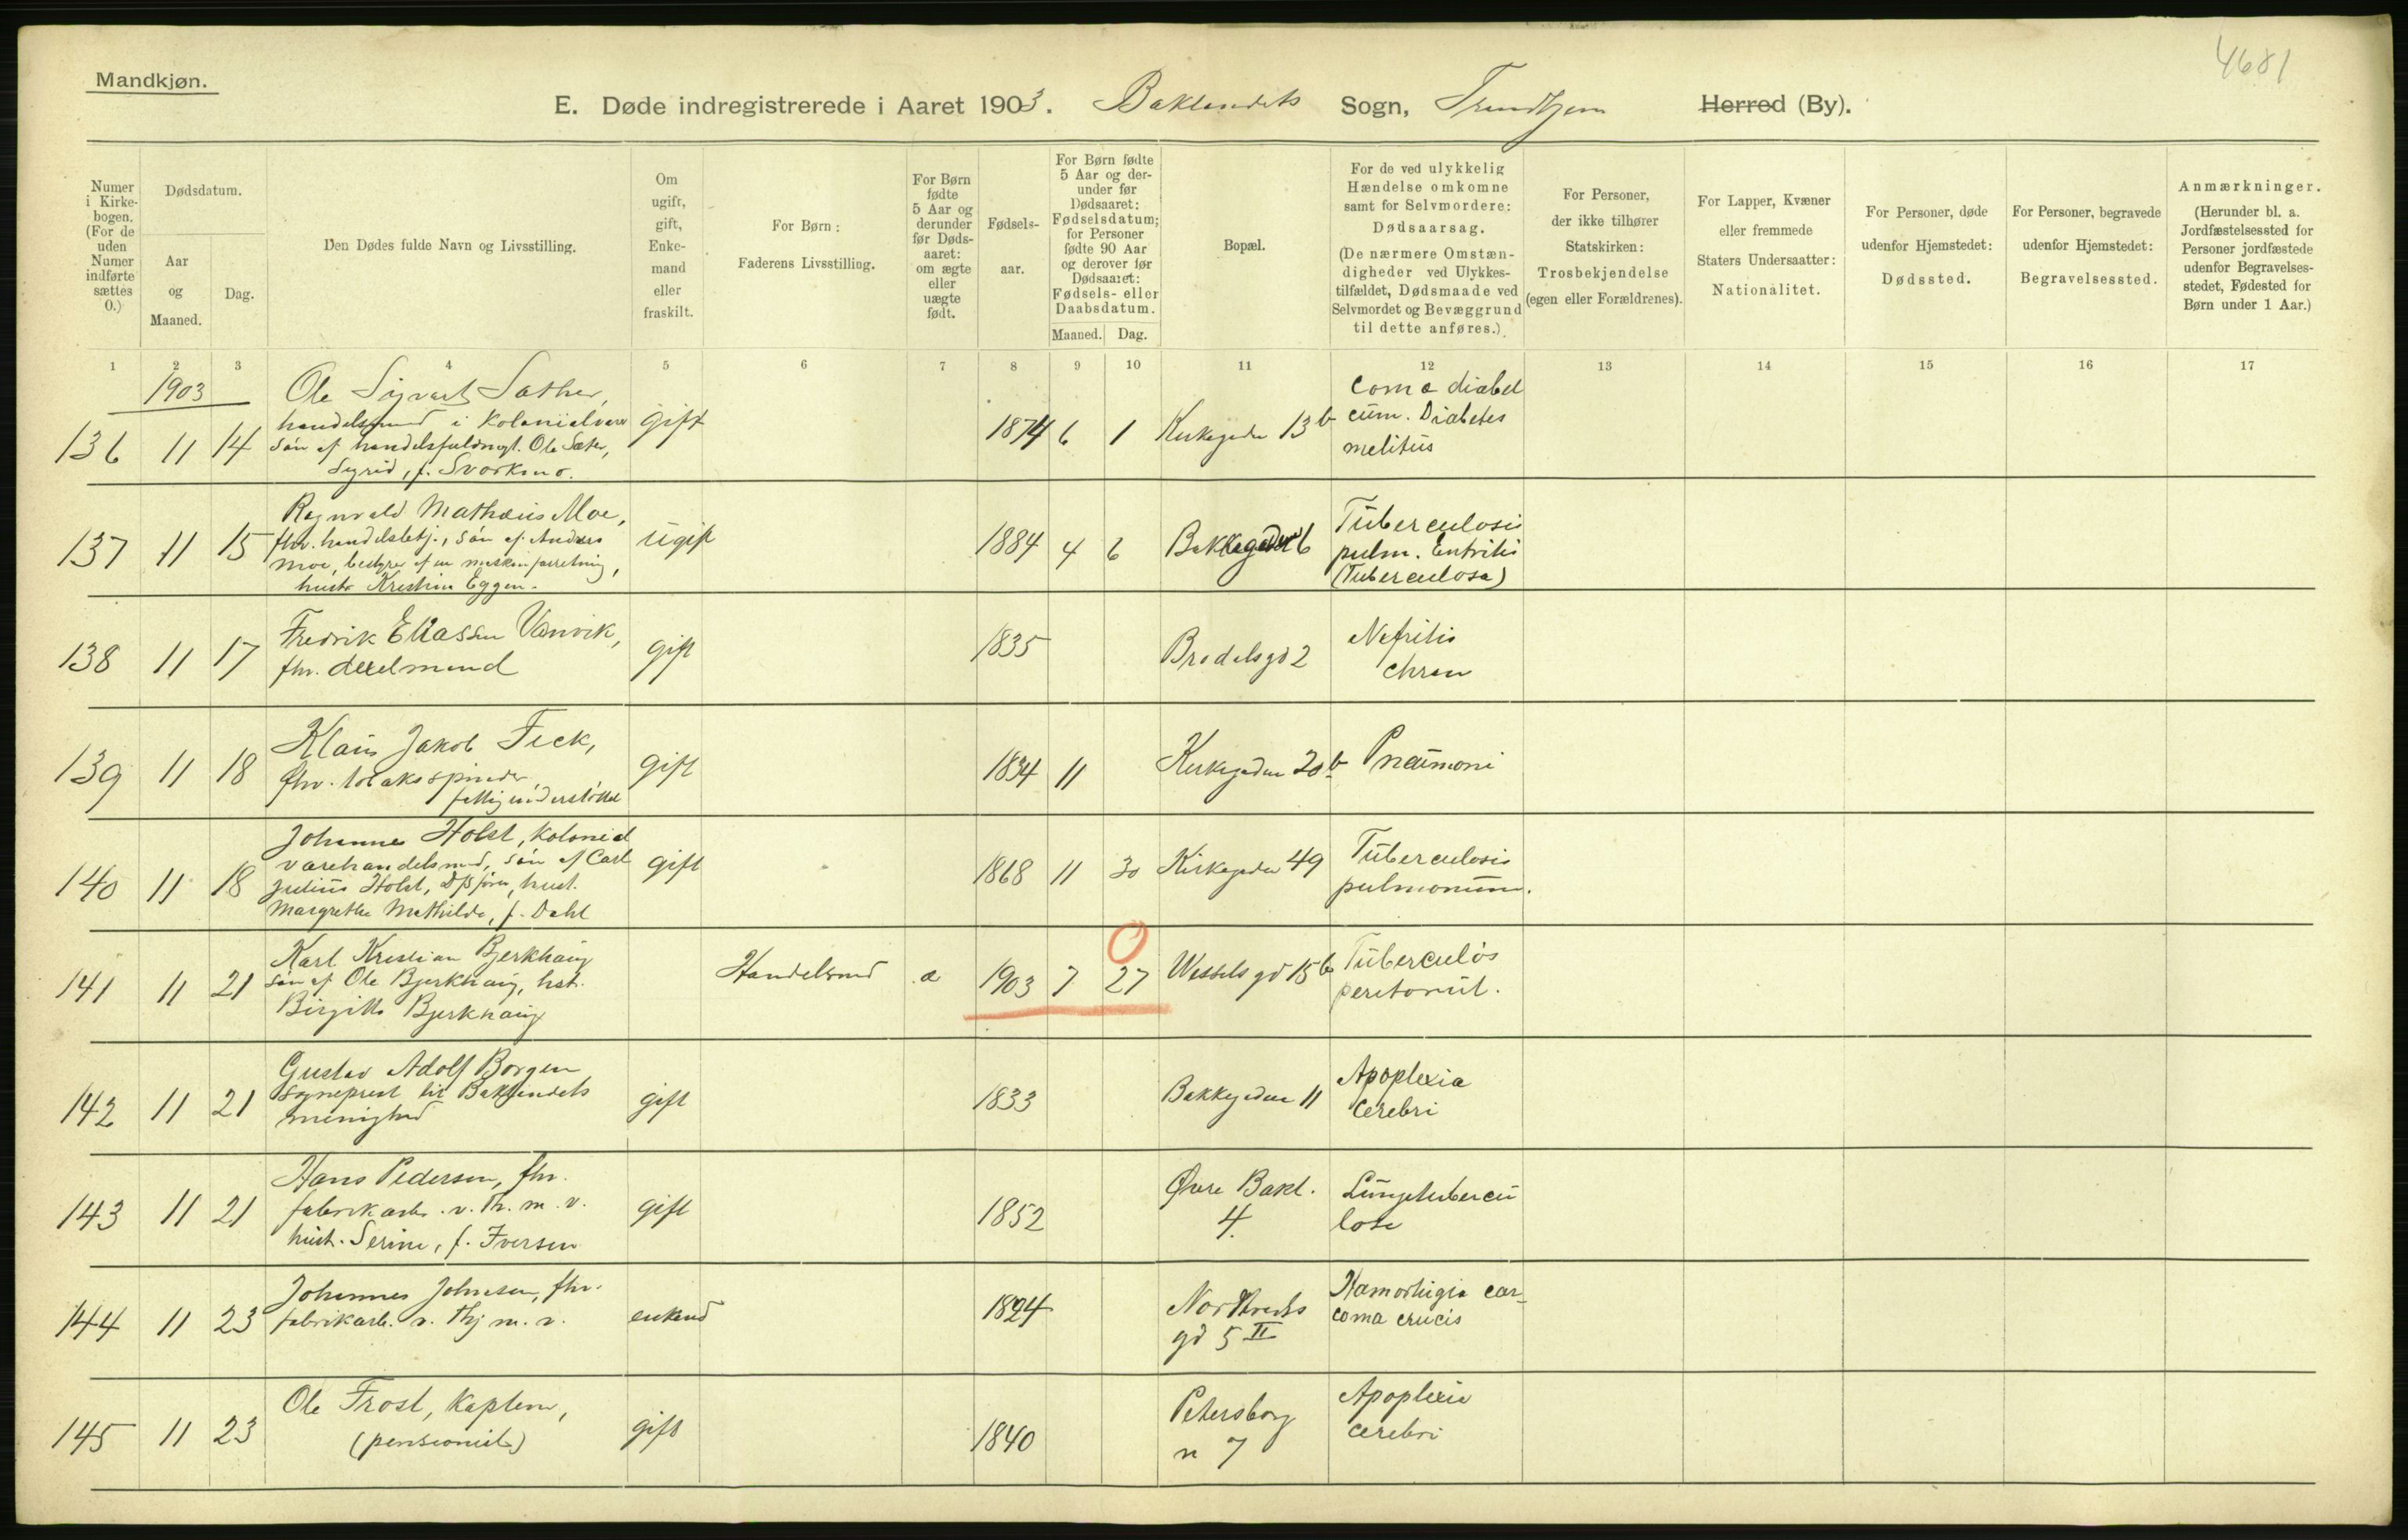 4681
Mandkjøn.
E. Døde indregistrerede i Aaret 1903. Baklandets Sogn, Trondhjem Herred (By).
Numer i Kirkebogen. (For de uden Numer indførte sættes 0.)
Dødsdatum.
Aar og Maaned.
Dag.
Den Dødes fulde Navn og Livsstilling.
Om ugift, gift, Enkemand eller fraskilt.
For Børn: Faderens Livsstilling.
For Børn fødte 5 Aar og derunder før Dødsaaret: om ægte eller uægte født.
Fødselsaar.
For Børn fødte 5 Aar og derunder før Dødsaaret: Fødselsdatum; for Personer fødte 90 Aar og derover før Dødsaaret: Fødsels- eller Daabsdatum.
Maaned. Dag.
Bopæl.
For de ved ulykkelig Hændelse omkomne samt for Selvmordere: Dødsaarsag. (De nærmere Omstændigheder ved Ulykkestilfældet, Dødsmaade ved Selvmordet og Bevæggrund til dette anføres.)
For Personer, der ikke tilhører Statskirken: Trosbekjendelse (egen eller Forældrenes).
For Lapper, Kvæner eller fremmede Staters Undersaatter: Nationalitet.
For Personer, døde udenfor Hjemstedet: Dødssted.
For Personer, begravede udenfor Hjemstedet: Begravelsessted.
Anmærkninger. (Herunder bl. a. Jordfæstelsessted for Personer jordfæstede udenfor Begravelsesstedet, Fødested for Børn under 1 Aar.)
1 2 3 4 5 6 7 8 9 10 11 12 13 14 15 16 17
1903
136 11 14
Ole Sigvart Sæther,
handelsmand i kolonialvare
søn af handelsfuldmægt. Ole Sæter,
Sigrid, f. Svorkmo.
gift
1874 6 1
Kirkegaden 13 b
Coma diabet
cum. Diabetes
melitus
137 11 15
Ragnvald Mathæus Moe,
fhv. handelsbetj., søn af Anders
Moe, bestyrer af en maskinforretning,
hustr. Kristine Eggen.
ugift
1884 4 6
Bakkegaden 6
Tuberculosis
pulm. Entritis
(Tuberculosa)
138 11 17
Fredrik Eliassen Vanvik,
fhv.
gift
1835
gd 2
Nefritis
chron
139 11 18
Klaus Jakob Fick,
fhv. tobaksspinder
fattigunderstøttet
gift
1834 11
Kirkegaden 20 b
Pneumoni
140 11 18
Johannes Holst, kolonial
varehandelsmd, søn af Carl
Julius Holst, hust.
Margrethe Mathilde, f. Dahl
gift
1868 11 30
Kirkegaden 49
Tuberculosis
pulmonum.
141 11 21
Karl Kristian Bjerkhaug
søn af Ole Bjerkhaug, hst.
Birgitte Bjerkhaug
Handelsmd
æ
1903 7 27
Wessels gd 15 b
Tuberculøs
peretonit.
142 11 21
Gustav Adolf Borgen
sogneprest til Baklandets
menighed
gift
1833
Bakkegaden 11
Apoplexia
cerebri
143 11 21
Hans Pedersen, fhv.
fabrikarb. v. Th. m. v.
hust. Serine, f. Iversen
gift
1852
Øvre Bakl.
4.
Lungetubercu
lose
144 11 23
Johannes Johnsen, fhv.
fabrikarb. v. Thj m. v.
enkemd
1824
gd 5 II
coma crucis
145 11 23
Ole Frost, kaptein,
(pensionist)
gift
1840
Petersborg
n 7
Apoplexia
cerebri